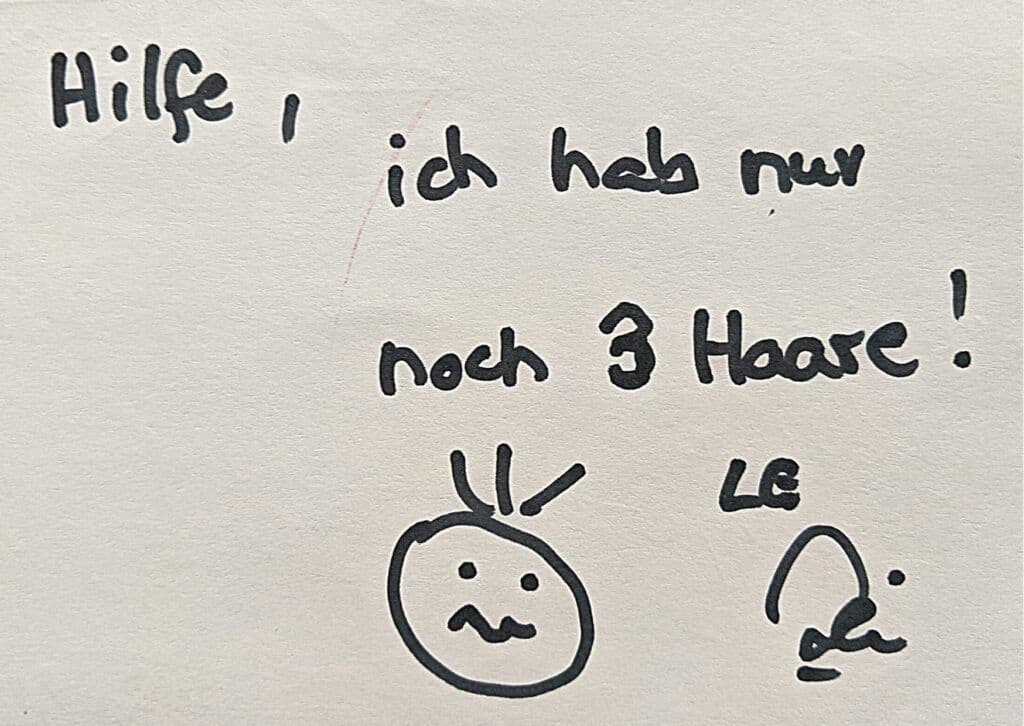 Hilfe,
ich hab nur
noch 3 Haare!
LE